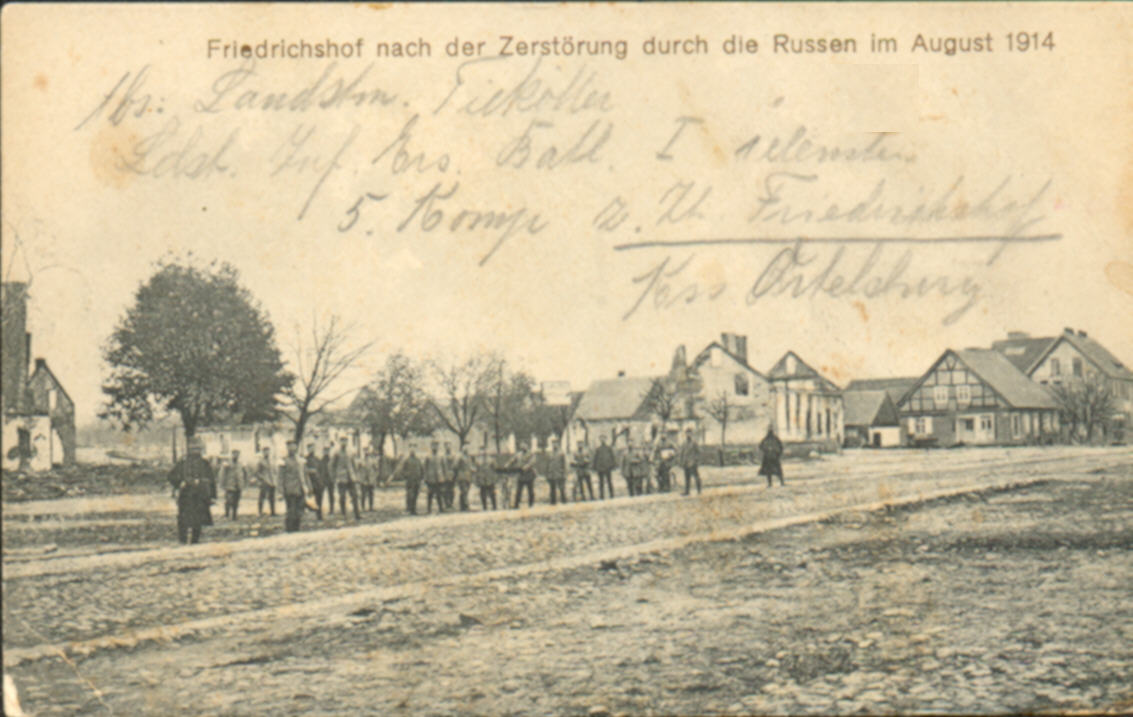 Friedrichshof nach der Zerstörung durch die Russen im August 1914
Abs: Landstm.
Ldst. Inf. Ers. Batl. I
5. Komp z. Zt. Friedrichshof
Krs Ortelsburg